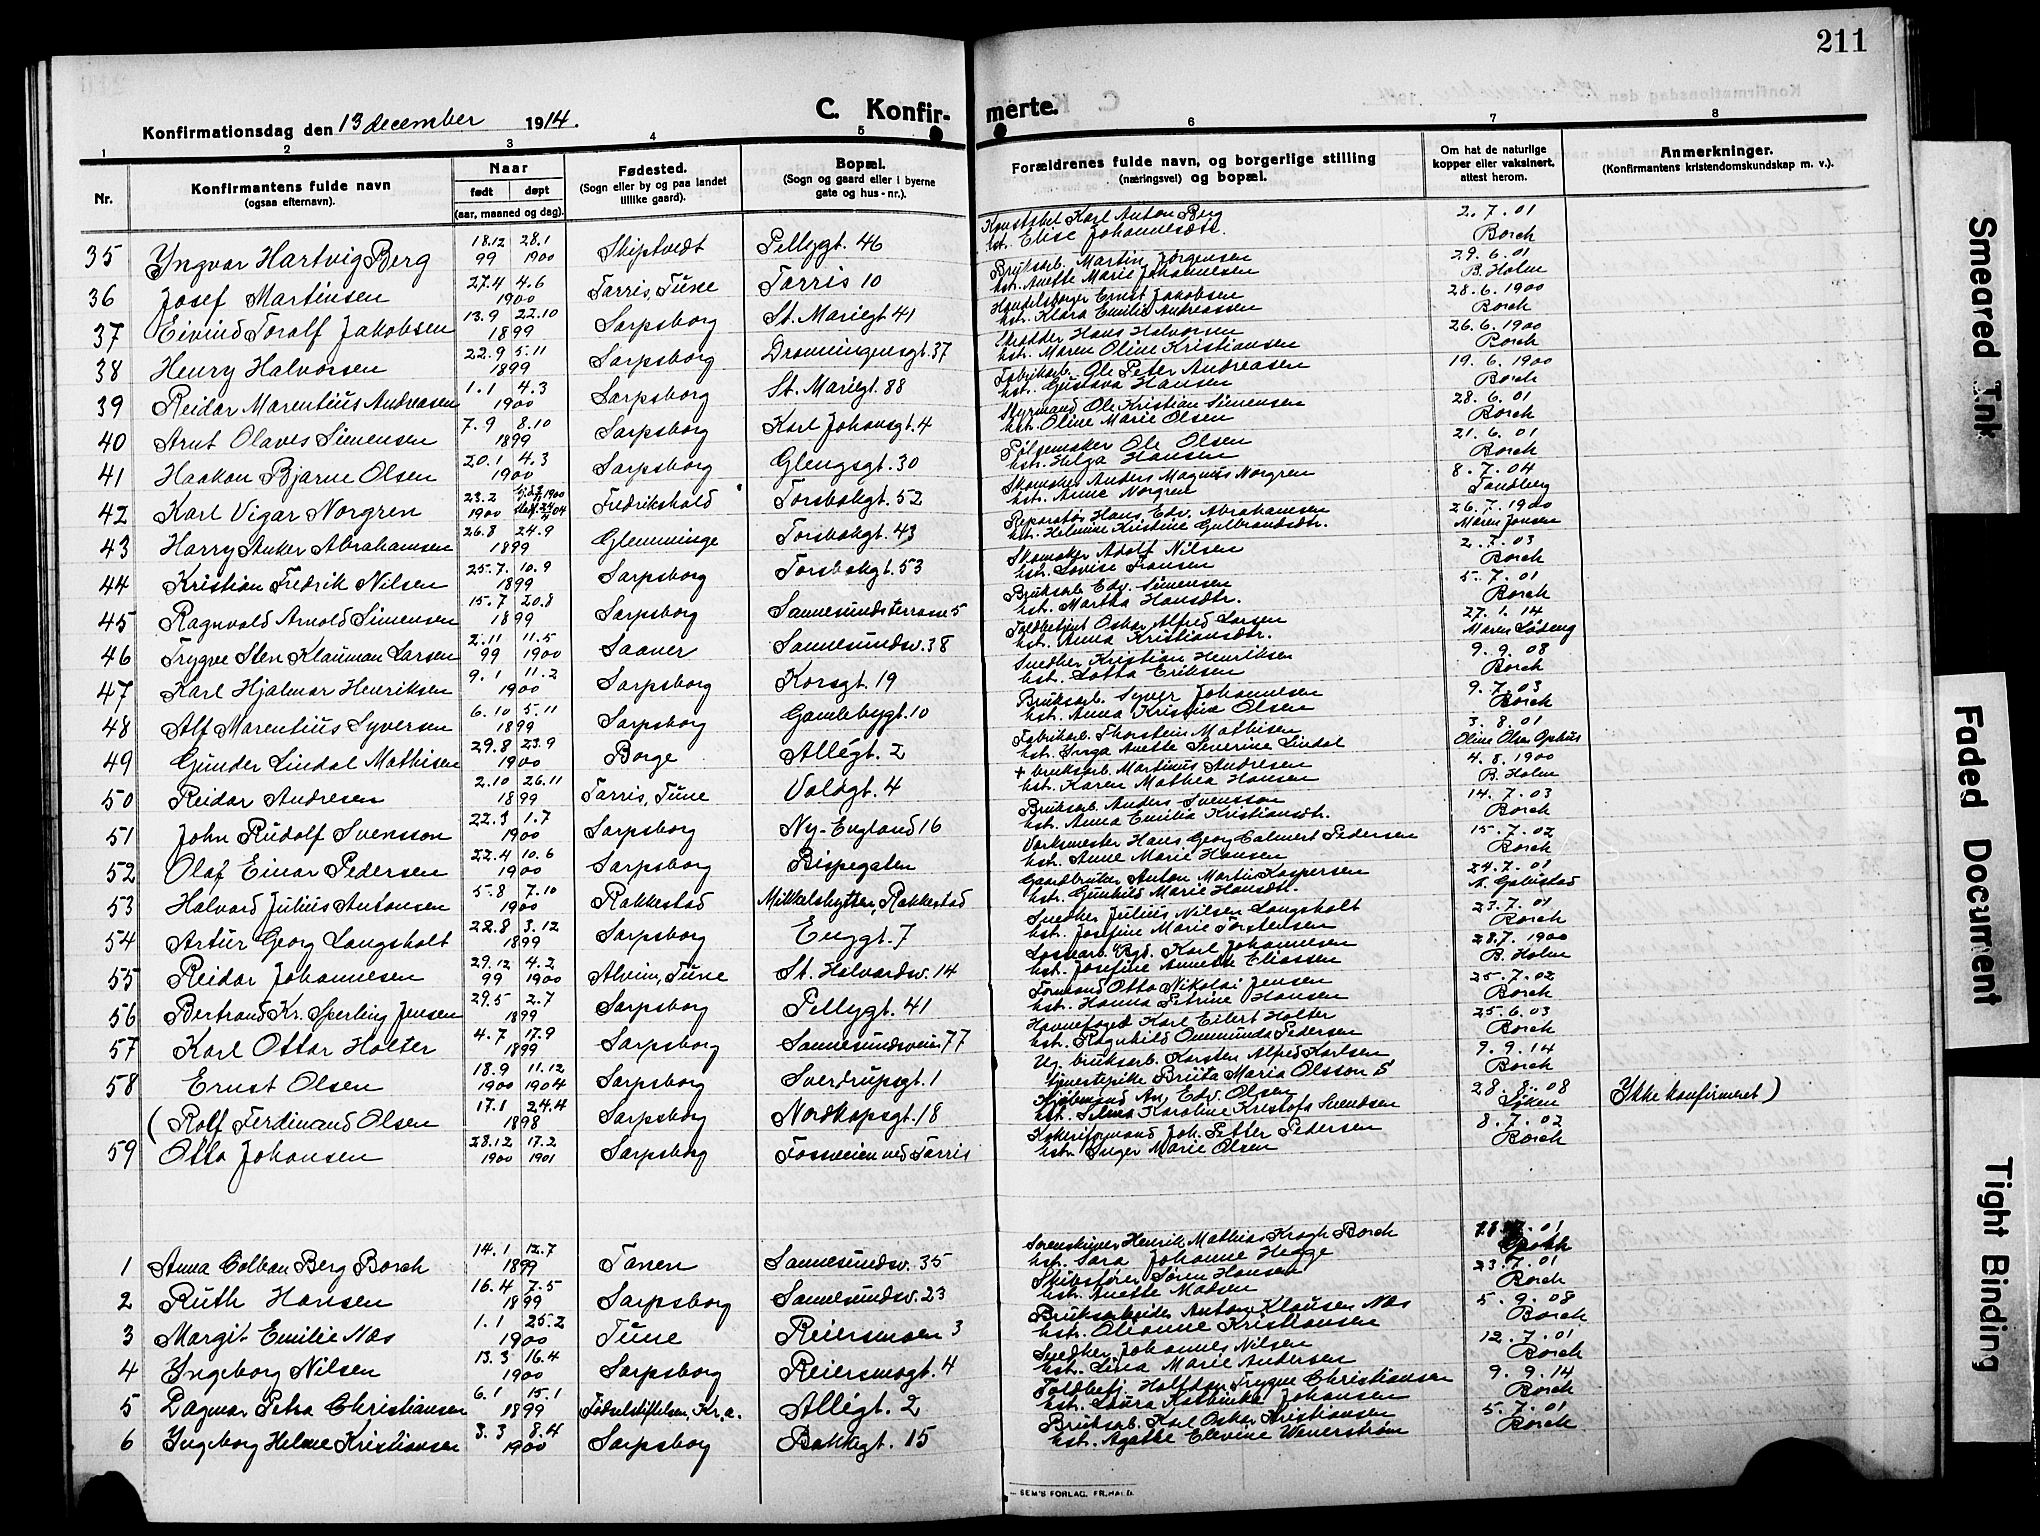 211
C. Konfirmerte.
Konfirmationsdag den 13 december 1914.
1 2 3 4 5 6 7 8
Nr. Konfirmantens fulde navn (ogsaa efternavn). Naar født døpt (aar, maaned og dag). Fødested. (Sogn eller by og paa landet tillike gaard). Bopæl. (Sogn og gaard eller i byerne gate og hus-nr.). Forældrenes fulde navn, og borgerlige stilling (næringsvei) og bopæl. Om hat de naturlige kopper eller vaksinert, attest herom. Anmerkninger. (Konfirmantens kristendomskundskap m. v.).
35 Yngvar Hartvig Berg 18.12 99 28.1 1900 Skiptvedt Pellygt. 46 Konstabel Karl Anton Berg hst. Elise Johannesdtr. 2.7.01 Borch
36 Josef Martinsen 27.4 4.6 1900 Tarris, Tune Tarris 10 Bruksarb. Martin Jørgensen hst. Anette Marie Johannesen 29.6.01 B. Holm
37 Eivind Toralf Jakobsen 13.9 22.10 1899 Sarpsborg St. Mariegt. 41 Handelsborger Ernst Jakobsen hst. Klara Emilie Andreassen 28.6.1900 Borch
38 Henry Halvorsen 22.9 5.11 1899 Sarpsborg Dronningensgt. 37 Skrædder Hans Halvorsen hst. Maren Oline Kristiansen 26.6.1900 Borch
39 Reidar Marentius Andreasen 1.1 4.3 1900 Sarpsborg St. Mariegt. 88 Fabrikarb. Ole Peter Andreasen hst. Gustava Hansen 19.6.1900 Borch
40 Arnt Olaves Simensen 7.9 8.10 1899 Sarpsborg Karl Johansgt. 4 Styrmand Ole Kristian Simensen hst. Oline Marie Olsen 28.6.01 Borch
41 Haakon Bjarne Olsen 20.1 4.3 1900 Sarpsborg Glengsgt. 30 Pølsemaker Ole Olsen hst. Helga Hansen 21.6.01 Borch
42 Karl Vigar Norgren 23.2 1900 Fredrikshald Torsbekgt. 52 Skomaker Anders Magnus Norgren hst. Anne Norgren 8.7.04 Tandberg
43 Harry Anker Abrahamsen 26.8 24.9 1899 Glemminge Torsbekgt. 43 Reparatør Hans Edv. Abrahamsen hst. Helmine Kristine Gulbrandsdtr. 26.7.1900 Maren Jonsen
44 Kristian Fredrik Nilsen 25.7. 10.9 1899 Sarpsborg Torsbekgt. 53 Skomaker Adolf Nilsen hst. Lovise Fransen 2.7.03 Borch
45 Ragnvald Arnold Simensen 15.7 20.8 1899 Sarpsborg Sannesundsterrasse 5 Bruksarb. Edv. Simensen hst. Martha Hansdtr. 5.7.01 Borch
46 Trygve Sten Klauman Larsen 2.11 99 11.5 1900 Saaner Sannesundsv. 38 Toldbetjent Oskar Alfred Larsen hst. Anna Kristiansdtr. 27.1.14 Maren Løbeng
47 Karl Hjalmar Henriksen 9.1 11.2 1900 Sarpsborg Korsgt. 19 Snedker Kristian Henriksen hst. Lotta Eriksen 9.9.08 Borch
48 Alf Marentius Syversen 6.10 5.11 1899 Sarpsborg Gamlebygt. 10 Bruksarb. Syver Johannesen hst. Anna Kristine Olsen 9.7.03 Borch
49 Gunder Lindal Mathisen 29.8 23.9 1900 Borge Allégt. 2 Fabrikarb. Thorstein Mathisen hst. Inga Anette Severine Lindal 3.8.01 Oline Olsen
50 Reidar Andresen 2.10 26.11 1899 Tarris, Tune Valdgt. 4 + bruksarb. Martinus Andresen hst. Karen Mathea Hansen 4.8.1900 B. Holm
51 John Rudolf Svensson 22.3 1.7 1900 Sarpsborg Ny-England 16 Bruksarb. Anders Svensson hst. Anna Emilia Kristiansdtr. 14.7.03 Borch
52 Olaf Einar Pedersen 22.4 10.6 1900 Sarpsborg Bispegaten Verksmester Hans Georg Calmert Pedersen hst. Anne Marie Hansen 15.7.02 Borch
53 Halvard Julius Antonsen 5.8 7.10 1900 Rakkestad Mikkelshytten, Rakkestad Gaardbruker Anton Martin Kaspersen hst. Gunhild Marie Hansdtr. 24.7.01
54 Artur Georg Langsholt 22.8 3.12 1899 Sarpsborg Enggt. 7 Snedker Julius Nilsen Langsholt hst. Josefine Marie Torstensen 23.7.01 Borch
55 Reidar Johannesen 29.12 99 4.2 1900 Alvim, Tune St. Halvardsv. 14 Lossearb. Bgd. Karl Johannesen hst. Josefine Annette Eliassen 28.7.1900 B. Holm
56 Bertrand Kr. Sperling Jensen 29.5 2.7 1899 Sarpsborg Pellygt. 41 Formand Otto Nikolai Jensen hst. Hanna Petrine Hansen 25.7.02 Borch
57 Karl Ottar Holter 4.7 17.9 1899 Sarpsborg Sannesundsveien 77 Havnefoged Karl Eilert Holter hst. Ragnhild Ommunda Pedersen 25.6.03 Borch
58 Ernst Olsen 18.9 1900 11.12 1904 Sarpsborg Sverdrupsgt. 1 Ug. bruksarb. Karsten Alfred Karlsen tjenestepike Brita Maria Olsson 9.9.14 Borch
(Rolf Ferdinand Olsen 17.1 24.4 1898 Sarpsborg Nordkapsgt. 18 Kjøbmand An. Edv. Olsen hst. Selma Karoline Kristofa Svendsen 28.8.08 Løken Ikke konfirmeret)
59 Otto Johansen 28.12 1900 17.2 1901 Sarpsborg Fosseveien ved Tarris Kokeriformand Joh. Petter Pedersen hst. Inger Marie Olsen 8.7.02 Borch
1 Anna Colban Berg Borch 14.1 12.7 1899 Tanen Sannesundsv. 35 Sorenskriver Henrik Mathias Krogh Borch hst. Sara Johanne Hegge
2 Ruth Hansen 16.4 7.5 1899 Sarpsborg Sannesundsv. 23 Skibsfører Søren Hansen hst. Anette Madsen 23.7.01 Borch
3 Margit Emilie Næs 1.1 25.2 1900 Tune Reiersmoen 3 Bruksarbeider Anton Klausen Næs hst. Olianne Kristiansen 5.9.08 Borch
4 Ingeborg Nilsen 13.3 16.4 1900 Sarpsborg Reiersmogt. 4 Snedker Johannes Nilsen hst. Lina Marie Andersen 12.7.01 Borch
5 Dagmar Petra Christiansen 6.1 15.1 1899 Fødselstiftelsen, Kr.a. Allégt. 2 Toldbetj. Halfdan Trygve Christiansen hst. Laura Kathinka Johansen 9.9.14 Borch
6 Ingeborg Helene Kristiansen 3.3 8.4 1900 Sarpsborg Bakkegt. 15 Bruksarb. Karl Oskar Kristiansen hst. Agathe Elevine Wennerstrøm 5.7.01 Borch
SEM'S FORLAG, FR.HALD.
Smeared Ink
Faded Document
Tight Binding